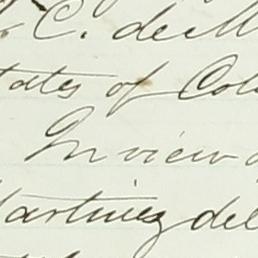 C. de M
tates of Col
In view
Martinez del